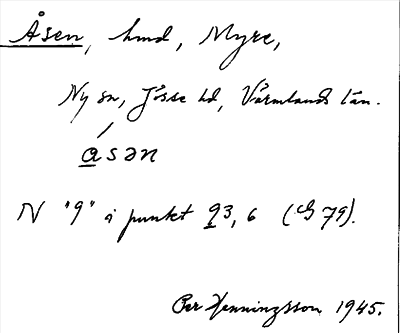 Åsen, hmd, Myre,
Ny sn, Jösse hd, Värmlands län.
åsən
N "9" i punkt 93, 6 (G 79).
Per Henningsson 1945.